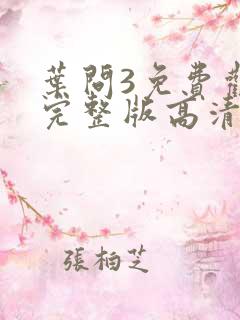 葉問3免費
完整版高清
張柏芝